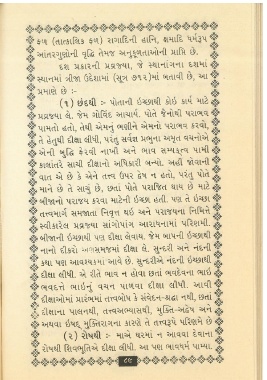 ફળ (તાત્કાલિક ફળ) રાગાદિની હાનિ, ક્ષમાદિ ધર્મરૂપ
આંતરગુણોની વૃદ્ધિ તેમજ અનુકૂળતાઓની પ્રાપ્તિ છે.
દશ પ્રકારની પ્રવ્રજ્યા, જે સ્થાનાંગના દશમાં
સ્થાનમાં ત્રીજા ઉદ્દેશામાં (સૂત્ર ૭૧૨) માં બતાવી છે, આ
પ્રમાણે છે :-
(૧) છંદથી :- પોતાની ઇચ્છાથી કોઇ કાર્ય માટે
પ્રવ્રજ્યા લે. જેમ ગોવિંદ આચાર્ય. પોતે જૈનોથી પરાભવ
પામતો હતો, તેથી એમનું ભણીને એમનો પરાભવ કરવો,
તે હેતુથી દીક્ષા લીધી. પરંતુ સર્વજ્ઞ પ્રભુના અમૃત વચનોએ
એની બુદ્ધિ ફેરવી નાખી અને ભાવ સમ્યક્ત્વ પામી
કાલાંતરે સાચી દીક્ષાનો અધિકારી બન્યો. અહીં જોવાની
વાત એ છે કે એને તત્ત્વ ઉપર દ્વેષ ન હતો, પરંતુ પોતે
માને છે તે સાચું છે, છતાં પોતે પરાજિત થાય છે માટે
બીજાનો પરાજય કરવા માટેની ઇચ્છા હતી. પણ તે ઇચ્છા
તત્ત્વમાર્ગ સમજાતા નિવૃત્ત થઇ અને પરાજયના નિમિત્તે
સ્વીકારેલ પ્રવ્રજ્યા સાંગોપાંગ આરાધનામાં પરિણમી.
બીજાની ઇચ્છાથી પણ દીક્ષા લેવાય. જેમ બાપની ઇચ્છાથી
નાનો દીકરો અણસમજમાં દીક્ષા લે. સુન્દરી અને નંદની
કથા પણ આવશ્યકમાં આવે છે. સુન્દરીએ નંદની ઇચ્છાથી
દીક્ષા લીધી. એ રીતે ભાવ ન હોવા છતાં ભવદેવના ભાઇ
ભવદત્તે ભાઇનું વચન પાળવા દીક્ષા લીધી. આવી
દીક્ષાઓમાં પ્રારંભમાં તત્ત્વબોધ કે સંવેદન-શ્રદ્ધા નથી, છતાં
દીક્ષાના પાલનથી, તત્ત્વઅભ્યાસથી, મુક્તિ-અદ્વેષ અને
અથવા ઇષદ્ મુક્તિરાગના કારણે તે તત્ત્વરૂપે પરિણમે છે
(૨) રોષથી :- માએ ઘરમાં ન આવવા દેવાના
રોષથી શિવભૂતિએ દીક્ષા લીધી. આ પણ ભાવધર્મ પામ્યા.